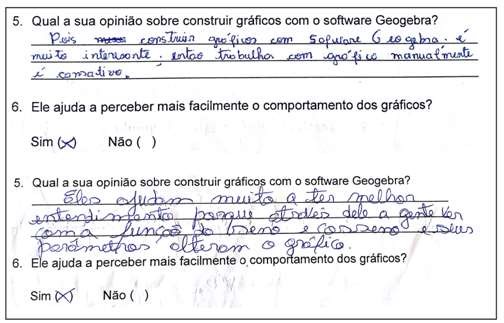 5. Qual a sua opinião sobre construir gráficos com o software Geogebra?
Pois construir gráficos com Software Geogebra. é
muito interesante. entao trabalha com gráfico manualmente
é cansativo.
6. Ele ajuda a perceber mais facilmente o comportamento dos gráficos?
Sim (x) Não ( )
5. Qual a sua opinião sobre construir gráficos com o software Geogebra?
Eles ajudam muito a ter melhor
entendimento porque através dele a gente ver
com a função do seno e cosseno e seus
parâmetros alteram o gráfico.
6. Ele ajuda a perceber mais facilmente o comportamento dos gráficos?
Sim (x) Não ( )